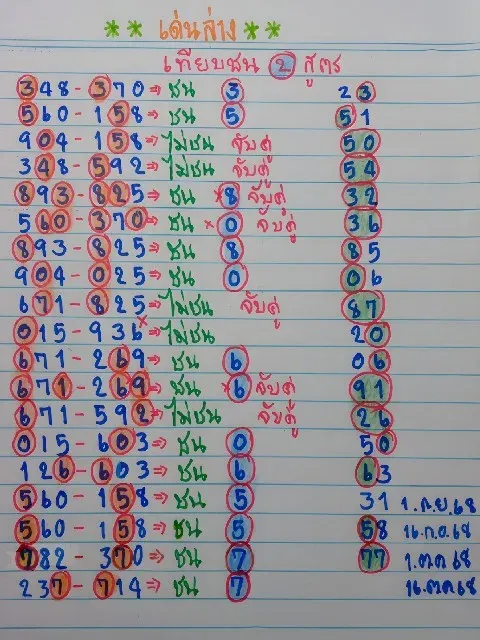 ** เด่นล่าง **
เทียบชน 2 สูตร
348 - 370 ⇒ ชน 3 23
560 - 158 ⇒ ชน 5 51
904 - 158 ⇒ ไม่ชน จับคู่ 50
348 - 592 ⇒ ไม่ชน จับคู่ 54
893 - 825 ⇒ ชน ×8 จับคู่ 32
560 - 370 ⇒ ชน ×0 จับคู่ 36
893 - 825 ⇒ ชน 8 85
904 - 025 ⇒ ชน 0 06
671 - 825 ⇒ ไม่ชน จับคู่ 87
015 - 936 ×⇒ ไม่ชน 20
671 - 269 ⇒ ชน 6 06
671 - 269 ⇒ ชน ×6 จับคู่ 91
671 - 592 ⇒ ไม่ชน จับคู่ 26
015 - 603 ⇒ ชน 0 50
126 - 603 ⇒ ชน 6 63
560 - 158 ⇒ ชน 5 31 1.ก.ย.68
560 - 158 ⇒ ชน 5 58 16.ก.ย.68
782 - 370 ⇒ ชน 7 77 1.ต.ค 68
237 - 714 ⇒ ชน 7 16.ต.ค 68